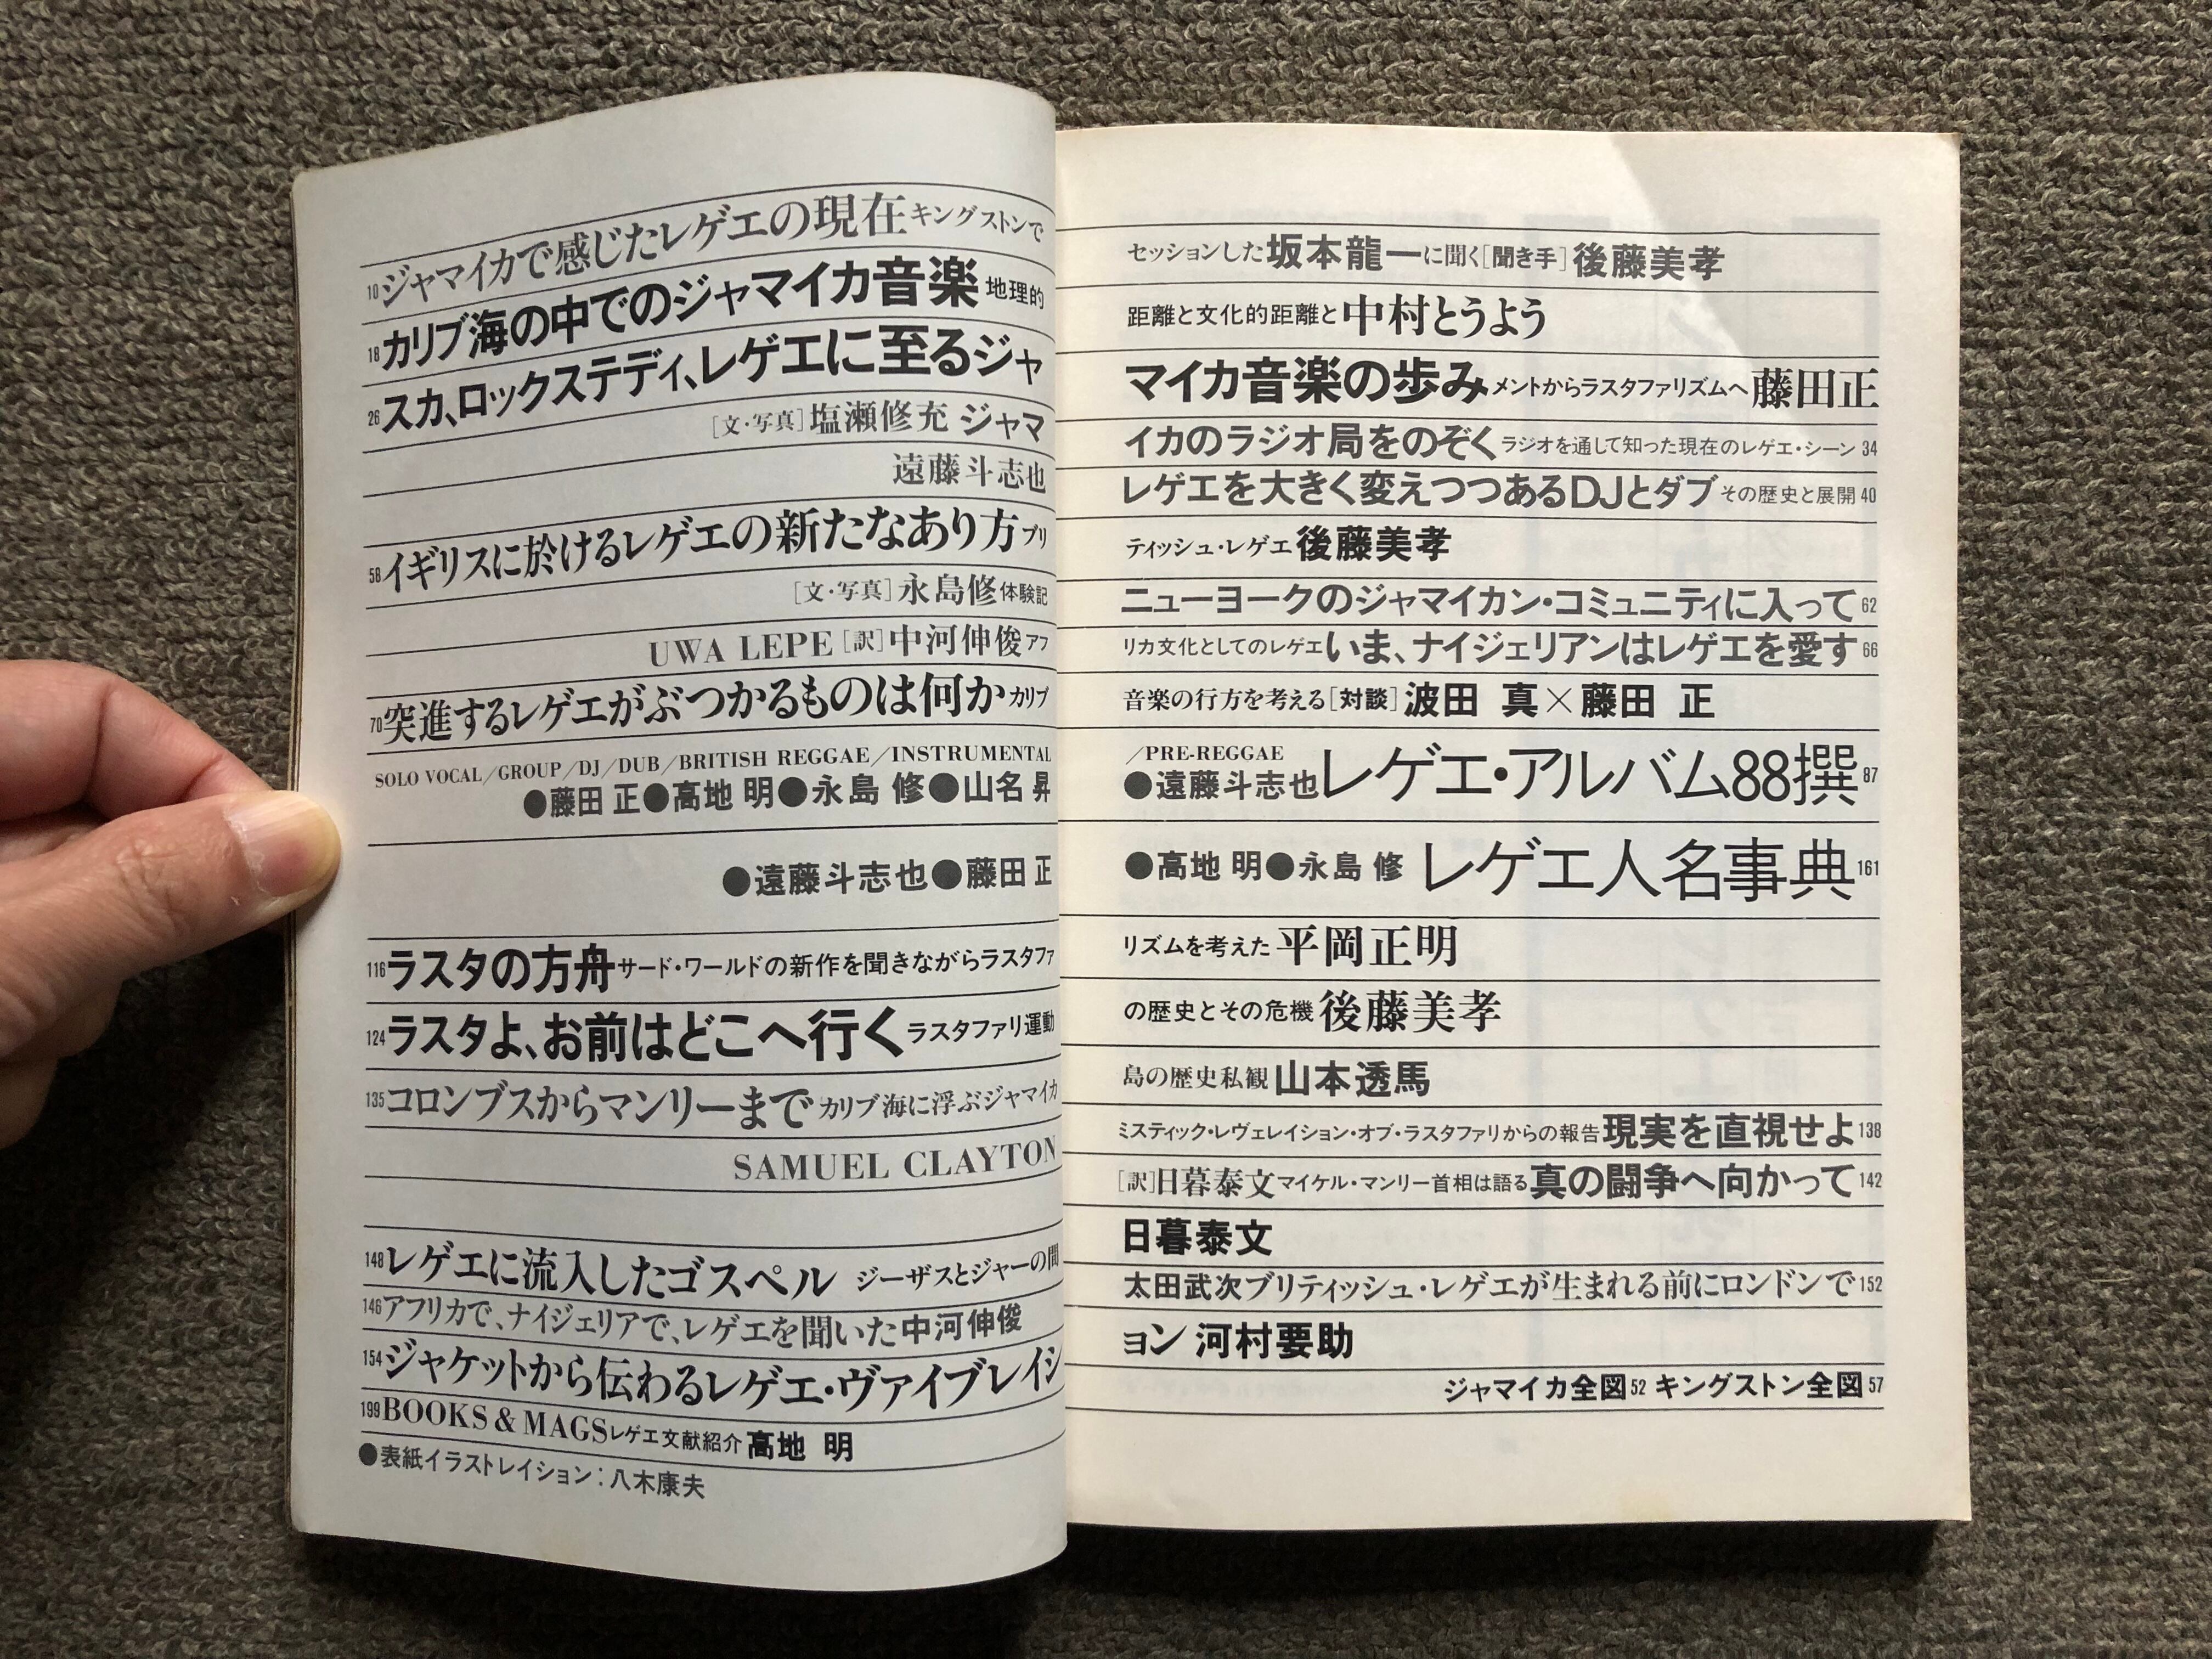 10ジャマイカで感じたレゲエの現在キングストンで
セッションした坂本龍一に聞く[聞き手]後藤美孝
18カリブ海の中でのジャマイカ音楽地理的
距離と文化的距離と中村とうよう
26スカ、ロックステディ、レゲエに至るジャ
マイカ音楽の歩みメントからラスタファリズムへ藤田正
[文・写真]塩瀬修充 ジャマ
イカのラジオ局をのぞくラジオを通して知った現在のレゲエ・シーン34
遠藤斗志也
レゲエを大きく変えつつあるDJとダブその歴史と展開40
58イギリスに於けるレゲエの新たなあり方ブリ
ティッシュ・レゲエ後藤美孝
[文・写真]永島修体験記
ニューヨークのジャマイカン・コミュニティに入って62
UWA LEPE[訳]中河伸俊アフ
リカ文化としてのレゲエいま、ナイジェリアンはレゲエを愛す66
70突進するレゲエがぶつかるものは何かカリブ
音楽の行方を考える[対談]波田 真×藤田 正
SOLO VOCAL/GROUP/DJ/DUB/BRITISH REGGAE/INSTRUMENTAL
/PRE-REGGAE
●藤田 正●高地 明●永島 修●山名 昇
●遠藤斗志也レゲエ・アルバム88撰87
●遠藤斗志也●藤田 正
●高地 明●永島 修 レゲエ人名事典161
116ラスタの方舟サード・ワールドの新作を聞きながらラスタファ
リズムを考えた平岡正明
124ラスタよ、お前はどこへ行くラスタファリ運動
の歴史とその危機後藤美孝
135コロンブスからマンリーまでカリブ海に浮ぶジャマイカ
島の歴史私観山本透馬
ミスティック・レヴェレイション・オブ・ラスタファリからの報告現実を直視せよ138
SAMUEL CLAYTON
[訳]日暮泰文マイケル・マンリー首相は語る真の闘争へ向かって142
148レゲエに流入したゴスペル ジーザスとジャーの間
日暮泰文
146アフリカで、ナイジェリアで、レゲエを聞いた中河伸俊
太田武次ブリティッシュ・レゲエが生まれる前にロンドンで152
154ジャケットから伝わるレゲエ・ヴァイブレイシ
ョン 河村要助
199BOOKS & MAGSレゲエ文献紹介高地 明
ジャマイカ全図52 キングストン全図57
●表紙イラストレイション:八木康夫